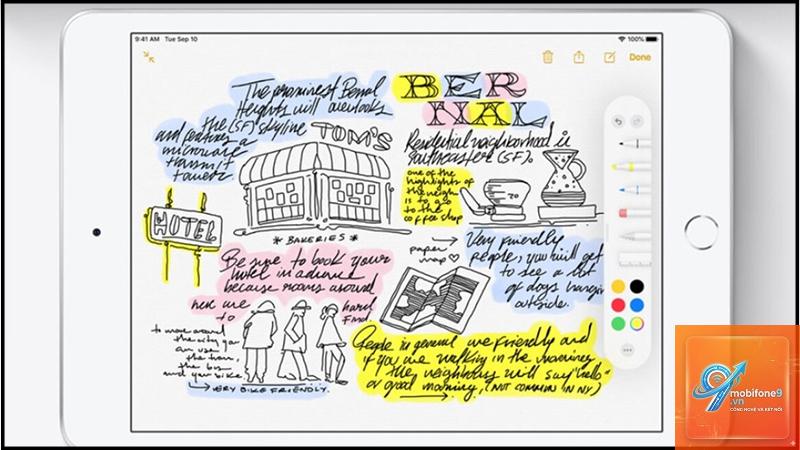 9:41 AM Tue Sep 10
100%
Done
The prominest Bernal
Heights will overlooks
the (SF) skyline
and features a
microwave
transmit
tower.
BER
NAL
Residential neighborhood is
southeastern (SF).
TOM'S
one of the
highlights of
the neigh
is to go
to the
coffee shop
20
HOTEL
* BAKERIES *
Be sure to book your
hotel in advanced
because rooms around
here are hard
to find.
paper
map
Very friendly
people, you will get
to see a lot
of dogs hanging
outside.
to move around
the city you
can use
the train,
the bus
and your bike.
VERY BIKE FRIENDLY.
People in general are friendly and
if you are walking in the morning
the neighbours will say "hello"
or good morning, (NOT COMMON IN NY)
mobifone9
.vn
CÔNG NGHỆ VÀ KẾT NỐI